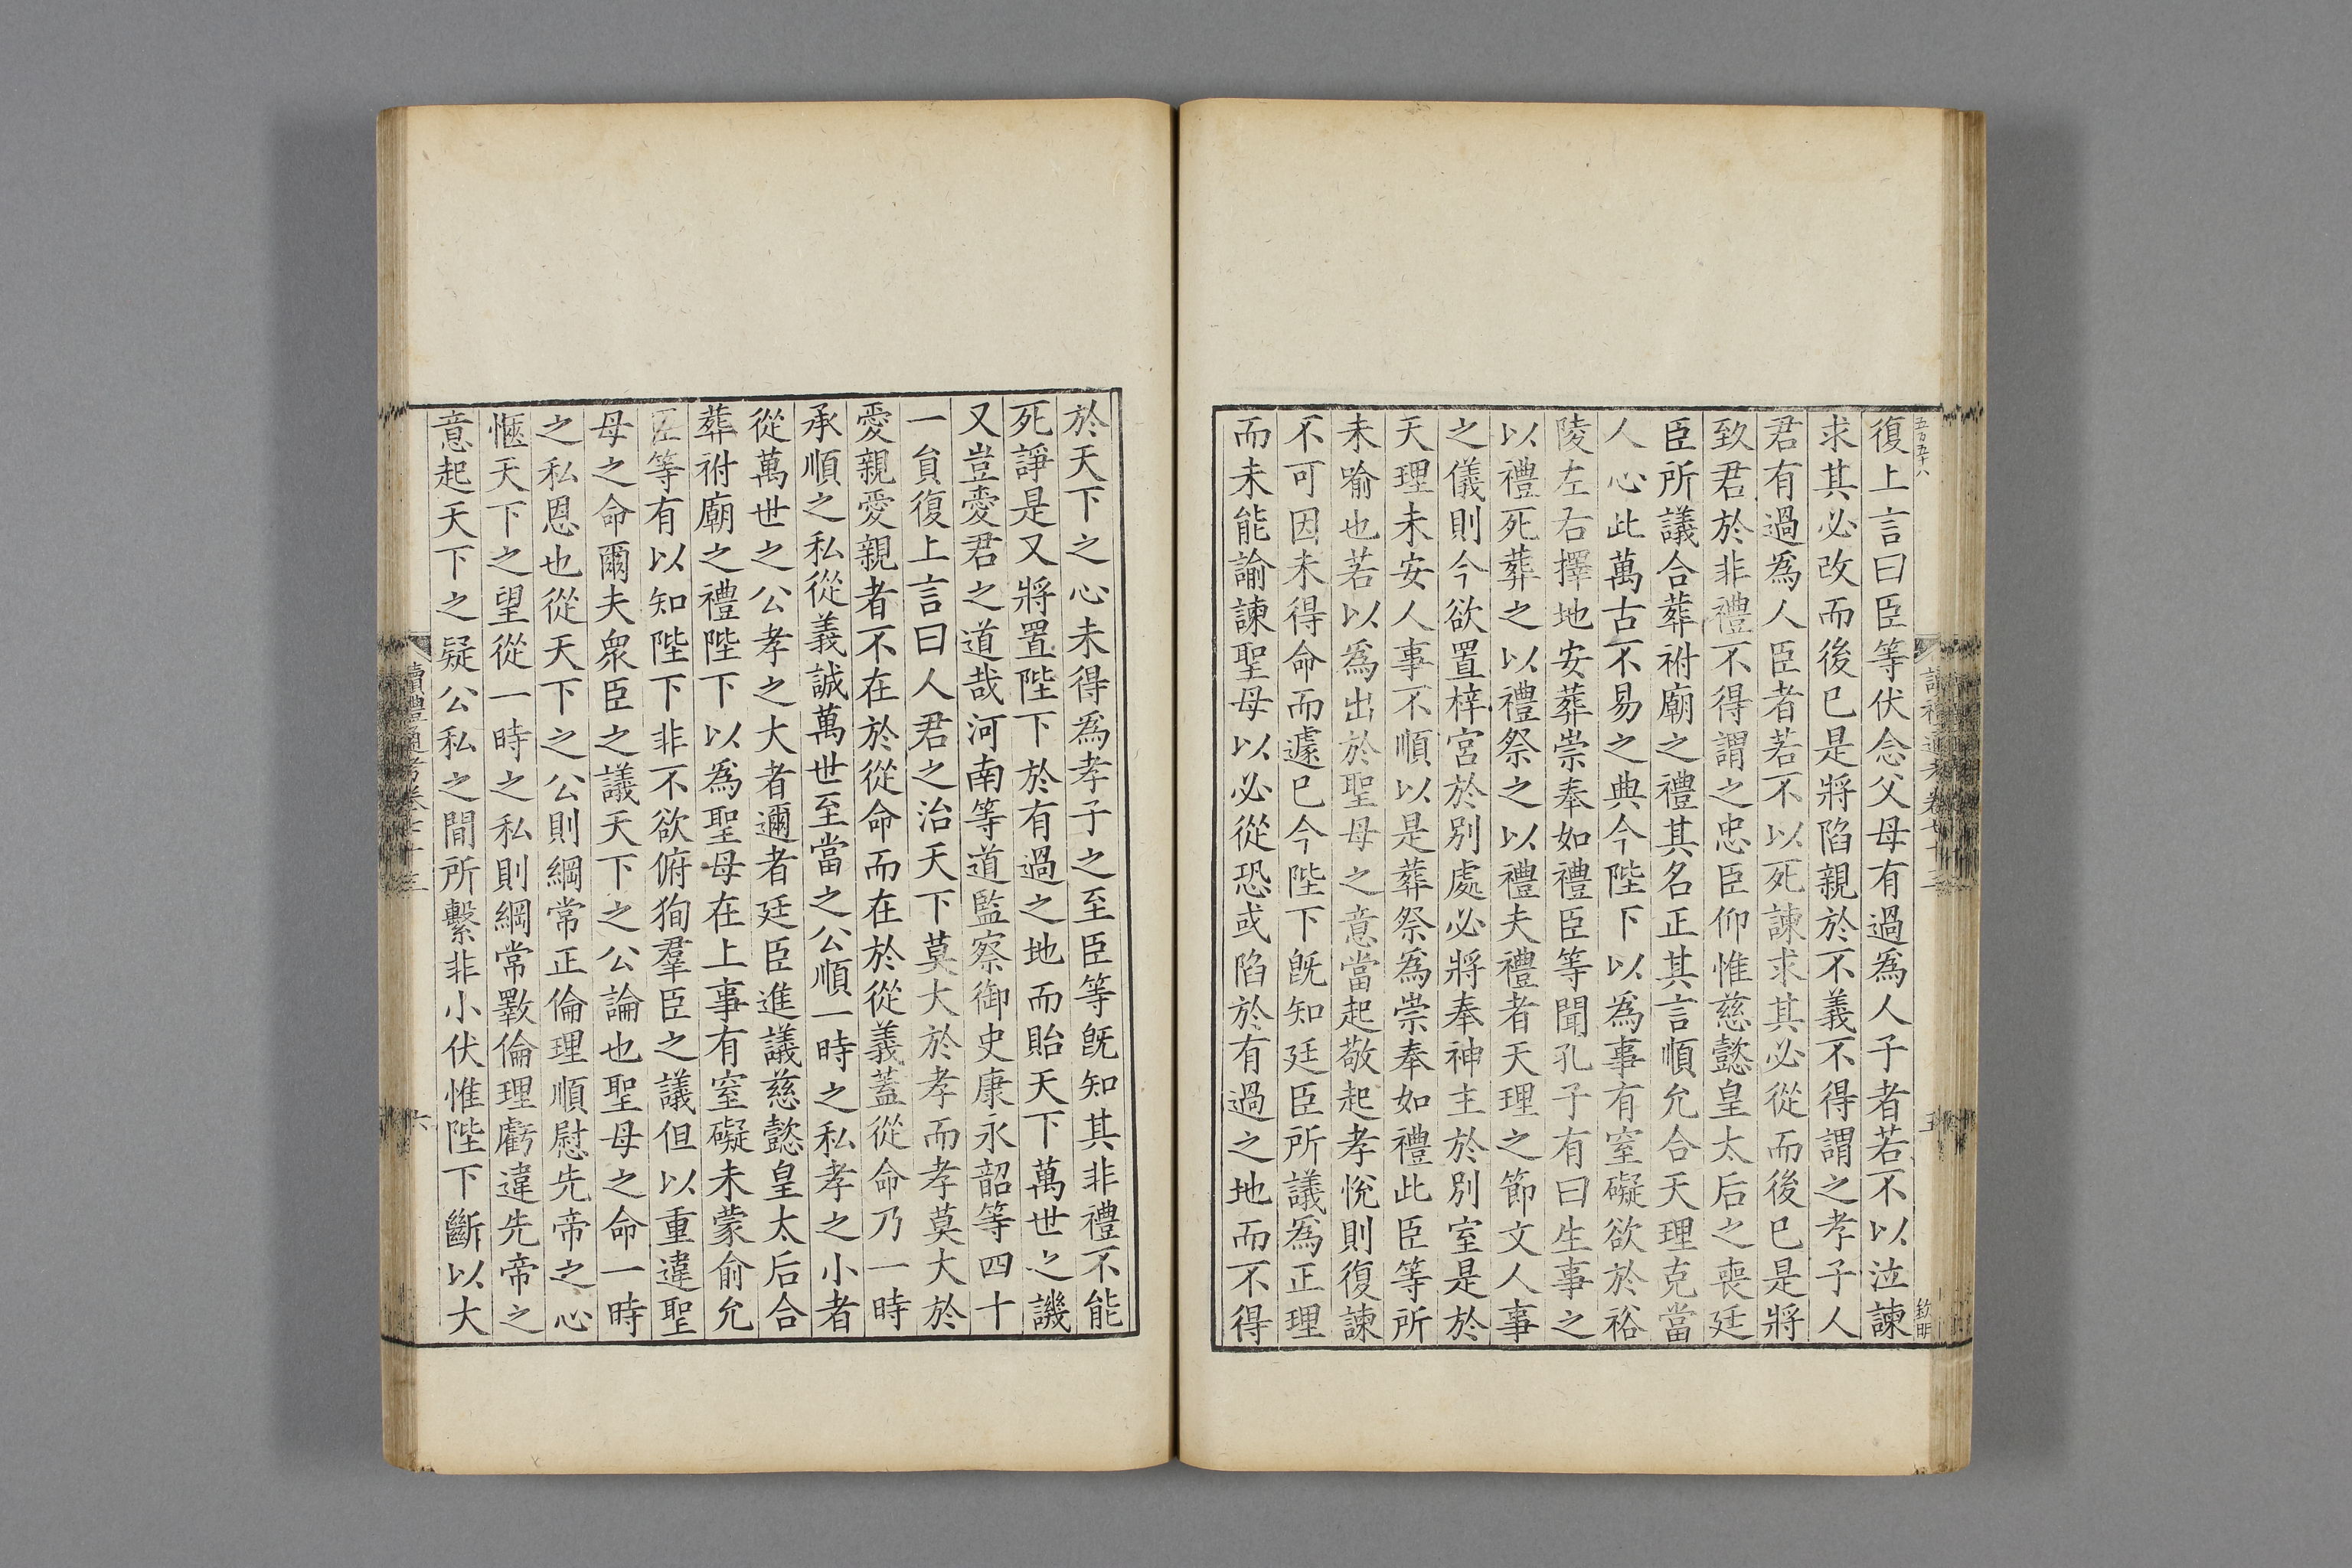 五百五十八
讀禮通考卷七十三
五
欽明
復上言曰臣等伏念父母有過爲人子者若不以泣諫
求其必改而後已是將陷親於不義不得謂之孝子人
君有過爲人臣者若不以死諫求其必從而後已是將
致君於非禮不得謂之忠臣仰惟慈懿皇太后之喪廷
臣所議合葬祔廟之禮其名正其言順允合天理克當
人心此萬古不易之典今陛下以爲事有窒礙欲於裕
陵左右擇地安葬崇奉如禮臣等聞孔子有曰生事之
以禮死葬之以禮祭之以禮夫禮者天理之節文人事
之儀則今欲置梓宮於別處必將奉神主於別室是於
天理未安人事不順以是葬祭爲崇奉如禮此臣等所
未喻也若以爲出於聖母之意當起敬起孝悅則復諫
不可因未得命而遽已今陛下旣知廷臣所議爲正理
而未能諭諫聖母以必從恐或陷於有過之地而不得
於天下之心未得爲孝子之至臣等旣知其非禮不能
死諍是又將置陛下於有過之地而貽天下萬世之譏
又豈愛君之道哉河南等道監察御史康永韶等四十
一員復上言曰人君之治天下莫大於孝而孝莫大於
愛親愛親者不在於從命而在於從義蓋從命乃一時
承順之私從義誠萬世至當之公順一時之私孝之小者
從萬世之公孝之大者邇者廷臣進議慈懿皇太后合
葬祔廟之禮陛下以爲聖母在上事有窒礙未蒙俞允
臣等有以知陛下非不欲俯狥羣臣之議但以重違聖
母之命爾夫衆臣之議天下之公論也聖母之命一時
之私恩也從天下之公則綱常正倫理順慰先帝之心
愜天下之望從一時之私則綱常斁倫理虧違先帝之
意起天下之疑公私之間所繫非小伏惟陛下斷以大
讀禮通考卷七十三
六